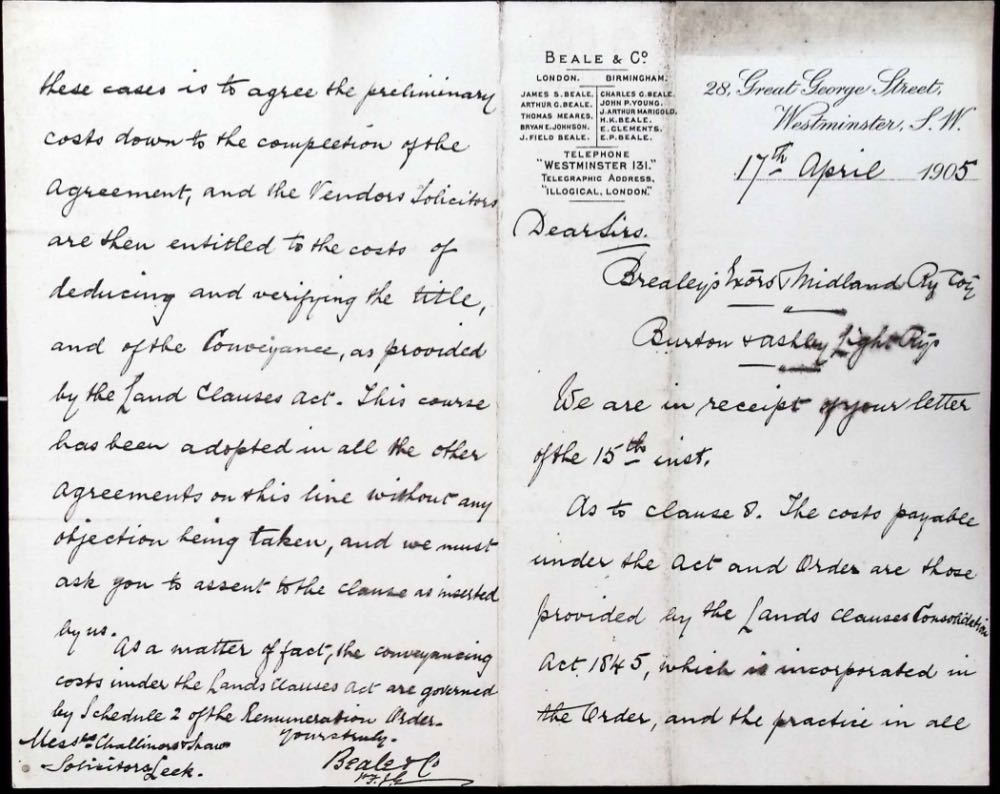 BEALE & Co.
LONDON. BIRMINGHAM.
JAMES S. BEALE. CHARLES G. BEALE.
ARTHUR G. BEALE. JOHN P. YOUNG.
THOMAS MEARES. J. ARTHUR MARIGOLD.
BRYAN E. JOHNSON. H. K. BEALE.
J. FIELD BEALE. E. CLEMENTS.
E. P. BEALE.
TELEPHONE
"WESTMINSTER 131."
TELEGRAPHIC ADDRESS,
"ILLOGICAL, LONDON."
28, Great George Street,
Westminster, S.W.
17th April 1905
Dear Sirs.
Brealey's Exors & Midland Ry Coy
Burton & Ashby Light Rys
We are in receipt of your letter
of the 15th inst.
As to clause 8. The costs payable
under the Act and Order are those
provided by the Lands Clauses Consolidation
Act 1845, which is incorporated in
the Order, and the practice in all
these cases is to agree the preliminary
costs down to the completion of the
Agreement, and the Vendors Solicitors
are then entitled to the costs of
deducing and verifying the title,
and of the Conveyance, as provided
by the Land Clauses Act. This course
has been adopted in all the other
Agreements on this line without any
objection being taken, and we must
ask you to assent to the clause as inserted
by us.
As a matter of fact, the conveyancing
costs under the Lands Clauses Act are governed
by Schedule 2 of the Remuneration Order.
Yours truly.
Beale & Co
Messrs Challinors & Shaw
Solicitors Leek.